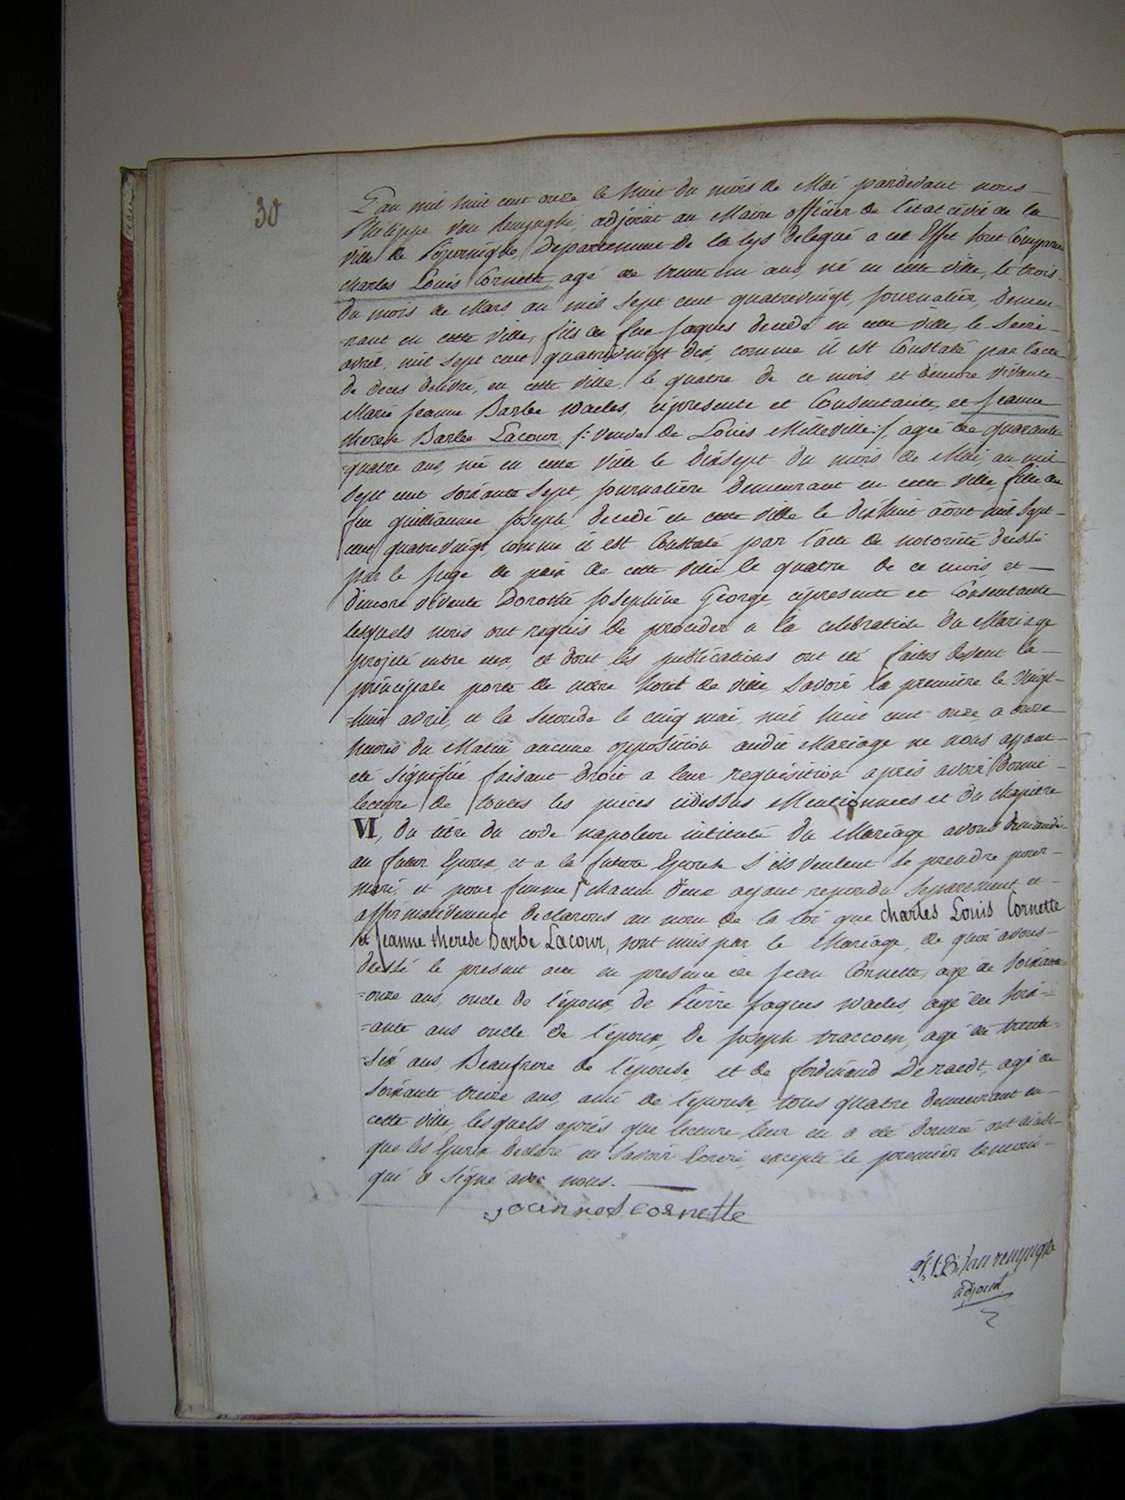 30
L'an mil huit cent onze le huit du mois de Mai pardevant nous
Philippe Van Renynghe, adjoint au Maire officier de l'etat civil de la
ville de Poperinghe, Departement de la Lys delegué a cet Effet sont Comparus
charles Louis Cornette, agé de trente un ans, né en cette ville, le trois
du mois de Mars an mil sept cent quatrevingt, journalier, demeu-
-rant en cette ville, fils de feu jaques decedé en cette ville le seize
avril mil sept cent quatrevingt dix, comme il est Constaté par l'acte
de deces delivré, en cette ville, le quatre de ce mois, et d'encore vivante
Marie jeanne Barbe Waeles, cipresente et Consentante, et jeanne
therese Barbe Lacour /: veuve de Louis Melleville :/, agée de quarante
quatre ans, née en cette ville le dixsept du mois de Mai, an mil
sept cent soixante sept, journaliere demeurant en cette ville, fille de
feu guilliaume joseph, decedé en cette ville le dixhuit aôut mil sept
cent quatrevingt, comme il est Constaté par l'acte de notorieté dressé
par le juge de paix de cette ville le quatre de ce mois et
d'encore vivante Dorothé josephine George, cipresente et Consentante
lesquels nous ont requis de proceder a la celebration du Mariage
projeté entre eux, et dont les publications ont été faites devant la
principale porte de notre hotel de ville Savoir la premiere le vingt-
-huit avril, et la seconde le cinq mai, mil huit cent onze, a onze
heures du Matin aucune opposition audit Mariage ne nous ayant
été signifiée faisant droit a leur requisition après avoir donné
lecture de toutes les pieces cidessus Mentionnées et du chapitre
VI, du titre du code napoleon intitulé du Mariage avons demandé
au futur Epoux, et a la future Epouse s'ils veulent se prendre pour
mari, et pour femme, chacun d'eux ayant repondu Separement et
affirmativement declarons au nom de la loi que charles Louis Cornette
et Jeanne therese Barbe Lacour, sont unis par le Mariage, de quoi avons
dressé le present acte en presence de jean Cornette, agé de soixante
-onze ans, oncle de l'époux, de Pierre jaques Waeles, agé de soix-
-ante ans oncle de l'époux, de joseph traccoen, agé de trente
-six ans, Beaufrere de l'épouse, et de ferdinand Deraedt, agé de
soixante treize ans, ami de l'épouse, tous quatre demeurant en
cette ville, lesquels après que lecture leur en a été donné ont ainsi
que les Epoux declaré ne savoir Ecrire, excepté le premier temoin
qui a signé avec nous.
joannes cornette
Van renynghe
adjoint